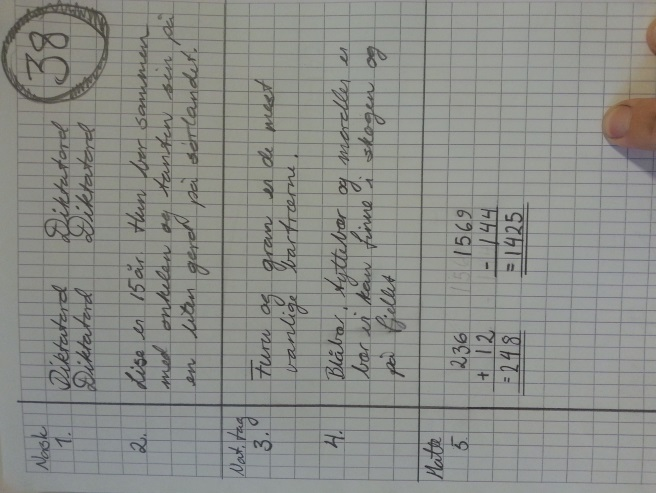 38
Norsk
1. Diktatord Diktatord
Diktatord Diktatord
2. Lise er 15 år. Hun bor sammen
med onkelen og tanten sin på
en liten gard på sørlandet.
Nat.fag
3. Furu og gran er de mest
vanlige bartrærne.
4. Blåbær, tyttebær og moreller er
bær vi kan finne i skogen og
på fjellet
Matte
5. 236 1569
+ 12 - 144
= 248 = 1425